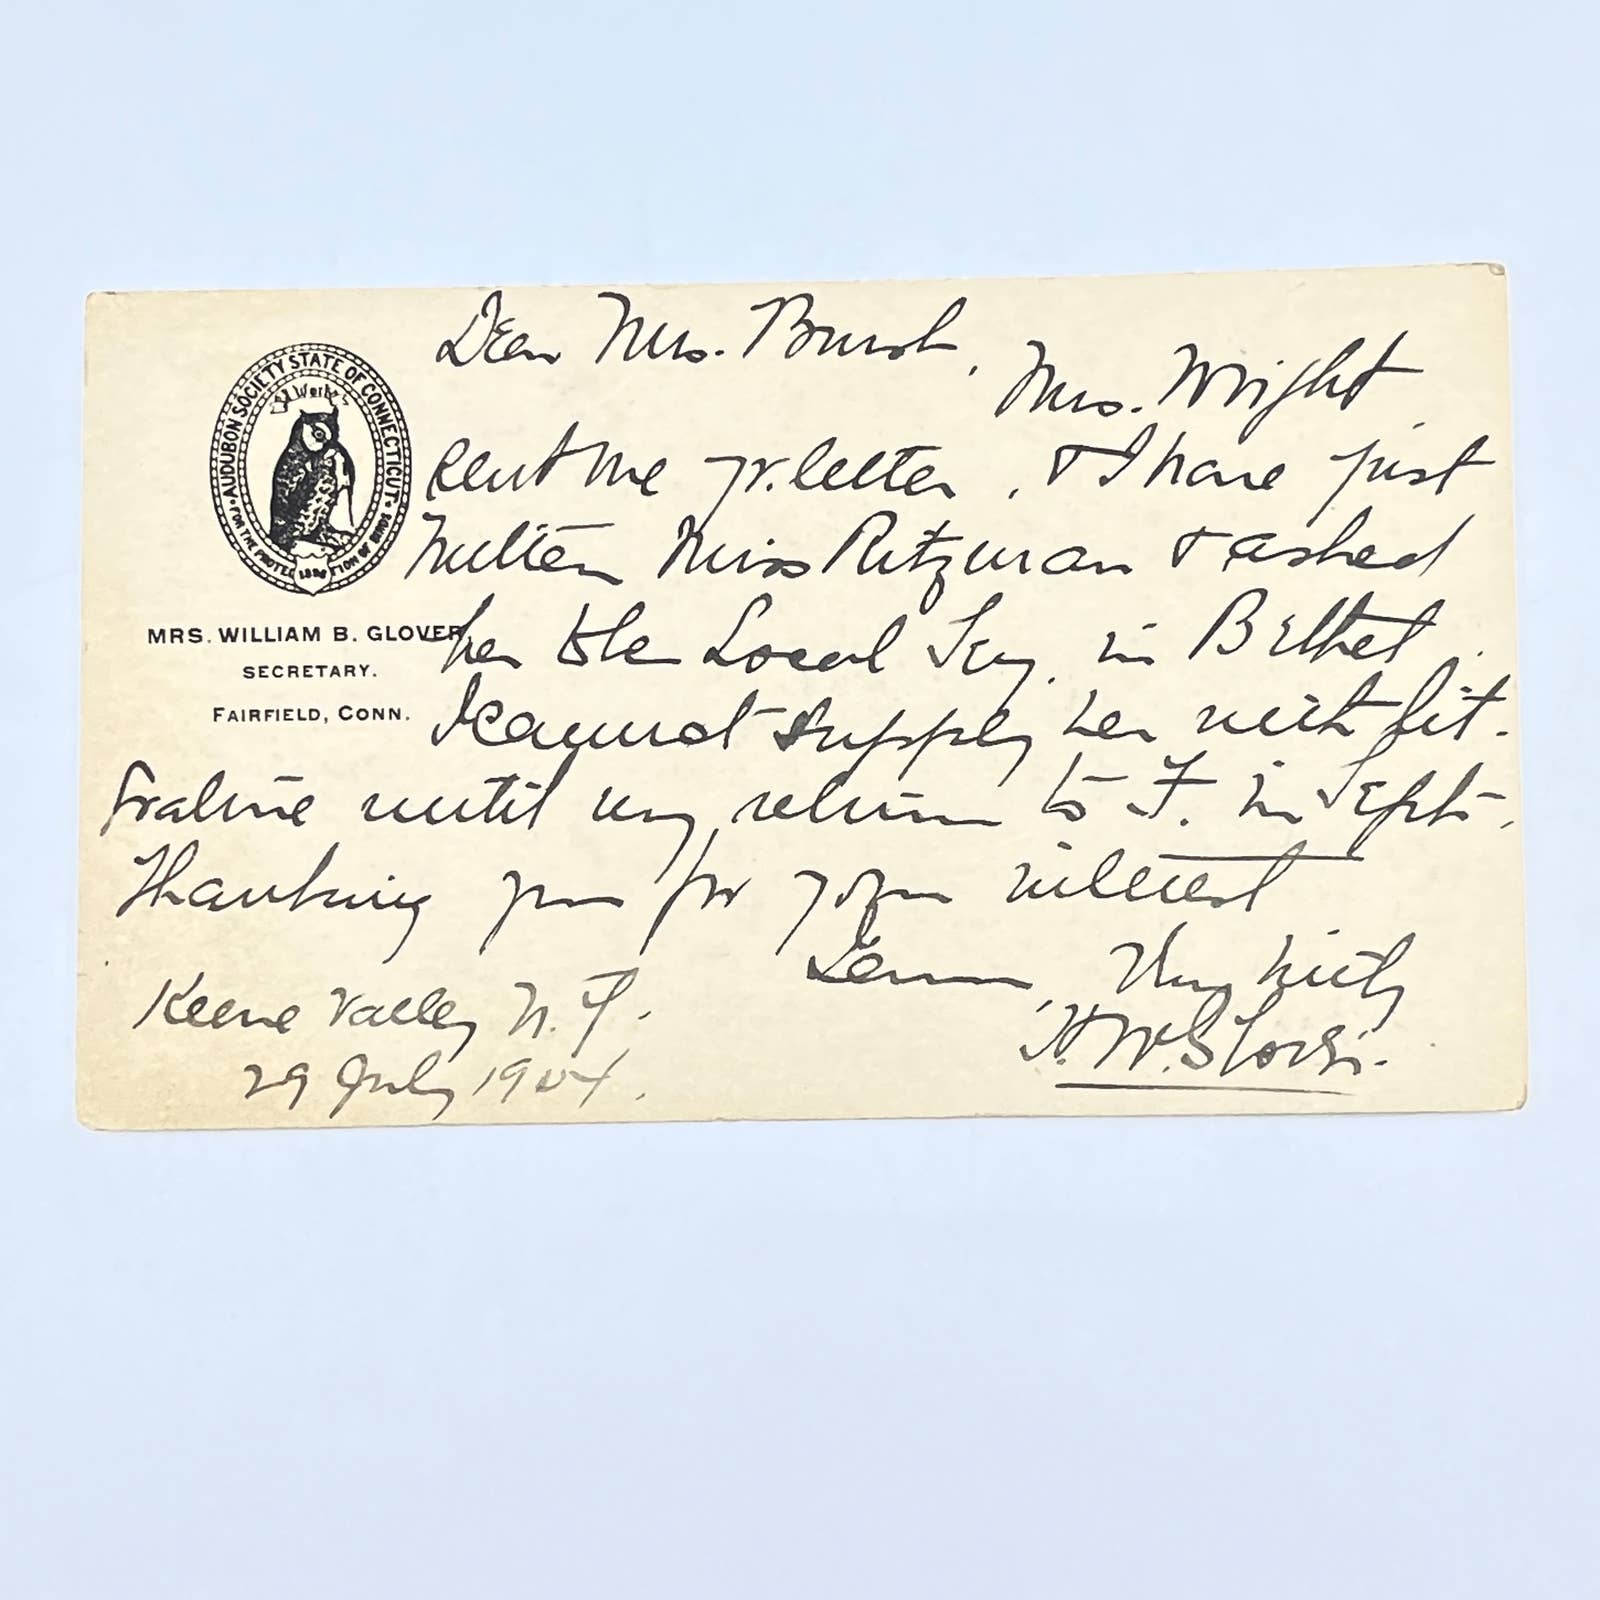 Dear Mrs. Burch,
Mrs. Wright
sent me yr. letter, & I have just
written Miss Ritzman & asked
her to be Local Secy. in Bethel.
I cannot supply her with lit-
erature until my return to F. in Sept.
Thanking you for your interest
I am, Very truly
H. W. Glover.
Keene Valley N.Y.
29 July 1904.
AUDUBON SOCIETY STATE OF CONNECTICUT
FOR THE PROTECTION OF BIRDS
MRS. WILLIAM B. GLOVER
SECRETARY.
FAIRFIELD, CONN.